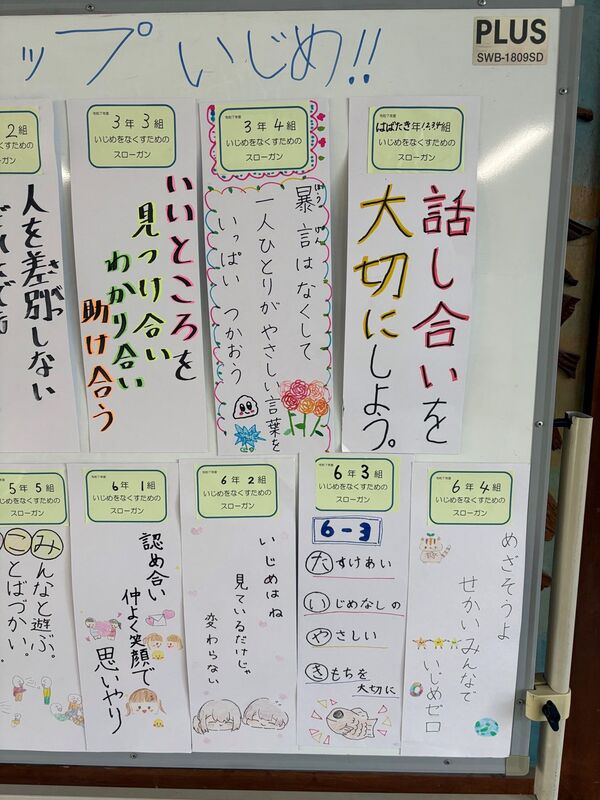 ップ いじめ!!
PLUS
SWB-1809SD
2組
くすための
ガン
人を差別しない
さべつ
令和7年度
3年3組
いじめをなくすための
スローガン
いいところを
見つけ合い
わかり合い
助け合う
令和7年度
3年4組
いじめをなくすための
スローガン
暴言はなくして
ぼうげん
一人ひとりがやさしい言葉を
いっぱい つかおう
令和7年度
はばたき年1234組
いじめをなくすための
スローガン
話し合いを
大切にしよう。
5年5組
いじめをなくすための
スローガン
みんなと遊ぶ。
ことばづかい。
令和7年度
6年1組
いじめをなくすための
スローガン
認め合い
仲よく笑顔で
思いやり
令和7年度
6年2組
いじめをなくすための
スローガン
いじめはね
見ているだけじゃ
変わらない
令和7年度
6年3組
いじめをなくすための
スローガン
6-3
たすけあい
いじめなしの
やさしい
きもちを
大切に
令和7年度
6年4組
いじめをなくすための
スローガン
めざそうよ
せかいみんなで
いじめゼロ